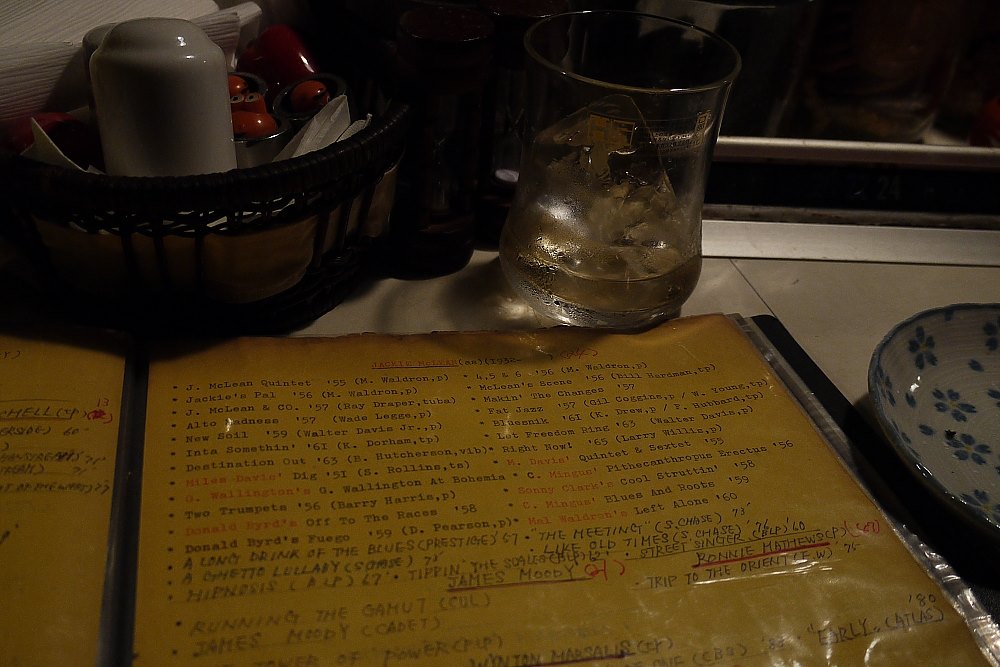 JACKIE McLEAN(as)(1932-
• J. McLean Quintet '55 (M. Waldron,p) • 4,5 & 6 '56 (M. Waldron,p)
• Jackie's Pal '56 (M. Waldron,p) • McLean's Scene '56 (Bill Hardman,tp)
• J. McLean & CO. '57 (Ray Draper,tuba) • Makin' The Changes '57
• Alto Madness '57 (Wade Legge,p) • Fat Jazz '57 (Gil Coggins,p / W. Young,tp)
• New Soil '59 (Walter Davis Jr.,p) • Bluesnik '6I (K. Drew,p / F. Hubbard,tp)
• Inta Somethin' '6I (K. Dorham,tp) • Let Freedom Ring '63 (Walter Davis,p)
• Destination Out '63 (B. Hutcherson,vib) • Right Now! '65 (Larry Willis,p)
• Miles Davis' Dig '5I (S. Rollins,ts) • M. Davis' Quintet & Sextet '55
• G. Wallington's G. Wallington At Bohemia • C. Mingus' Pithecanthropus Erectus '56
• Two Trumpets '56 (Barry Harris,p) • Sonny Clark's Cool Struttin' '58
• Donald Byrd's Off To The Races '58 • C. Mingus' Blues And Roots '59
• Donald Byrd's Fuego '59 (D. Pearson,p) • Mal Waldron's Left Alone '60
• A LONG DRINK OF THE BLUES (PRESTIGE) '57 • "THE MEETING" (S.CHASE) 73'
• A GHETTO LULLABY (S.CHASE) 73' • LIKE OLD TIMES (S.CHASE) '76
• HIPNOSIS (LP) 67 • TIPPIN' THE SCALES (LP) 62' • STREET SINGER (LP) '60
JAMES MOODY
RONNIE MATHEWS(P)
• RUNNING THE GAMUT (COL)
• TRIP TO THE ORIENT (E,W) 75
• JAMES MOODY (CADET)
POWER (LP)
WYNTON MARSALIS (TP)
"EARLY" (ATLAS) '80
(CBS) '83